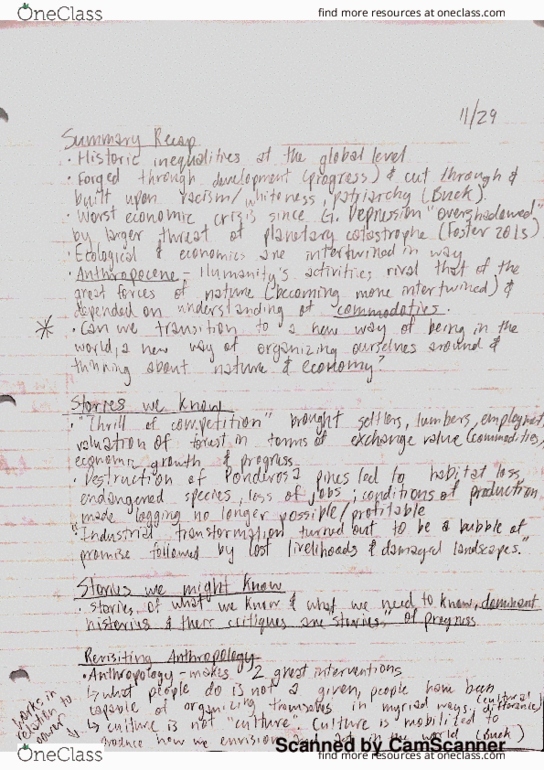 OneClass
find more resources at oneclass.com
11/29
Summary Recap
· Historic inequalities at the global level
· Forged through development (progress) & cut through &
built upon racism/whiteness, patriarchy (Buck).
· Worst economic crisis since G. Depression "overshadowed"
by larger threat of planetary catastrophe (Foster 2015)
· Ecological & economics are intertwined in way
· Anthropocene - Humanity's activities rival that of the
great forces of nature (becoming more intertwined) &
depended on understanding of commodities.
* · Can we transition to a new way of being in the
world, a new way of organizing ourselves around &
thinking about nature & economy?
Stories we know
· "Thrill of competition" brought settlers, lumbers, employment,
valuation of forest in terms of exchange value (commodities,
economic growth & progress
· Destruction of Ponderosa pines led to habitat loss,
endangered species, loss of jobs; conditions of production
made logging no longer possible/profitable
"Industrial transformation turned out to be a bubble of
promise followed by lost livelihoods & damaged landscapes."
Stories we might know
· stories of what we know & what we need to know, dominant
histories & their critiques are stories of progress
Revisiting Anthropology
· Anthropology - makes 2 great interventions
↳ what people do is not a given, people have been
capable of organizing themselves in myriad ways (cultural
difference)
↳ culture is not "culture" Culture is mobilized to
produce how we envision in the world (Buck)
works in
relation to
power
Scanned by CamScanner
OneClass
find more resources at oneclass.com